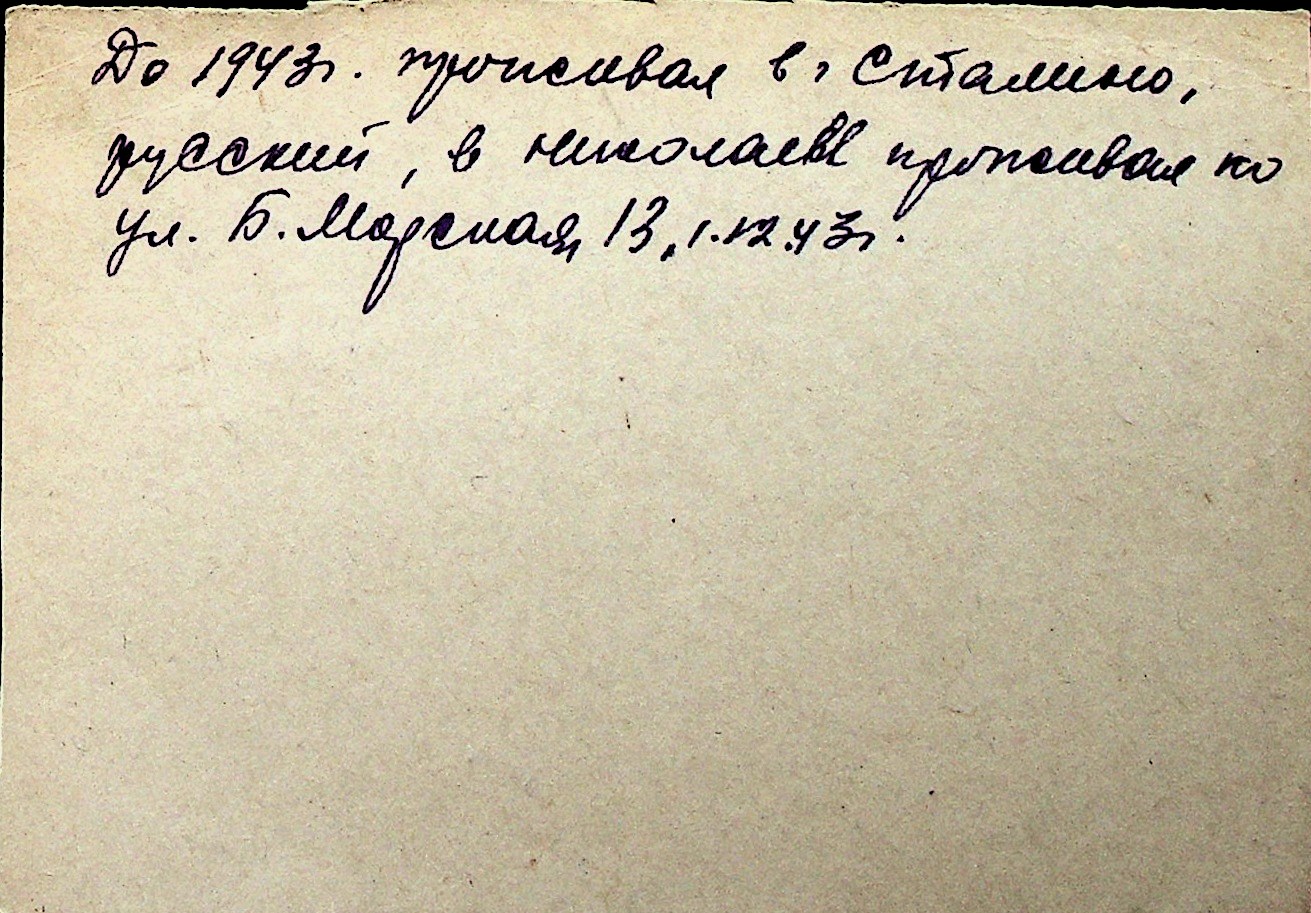 До 1943г. проживал в г Сталино,
русский, в николаеве проживал по
ул. Б. Морская, 13, 1.12.43г.